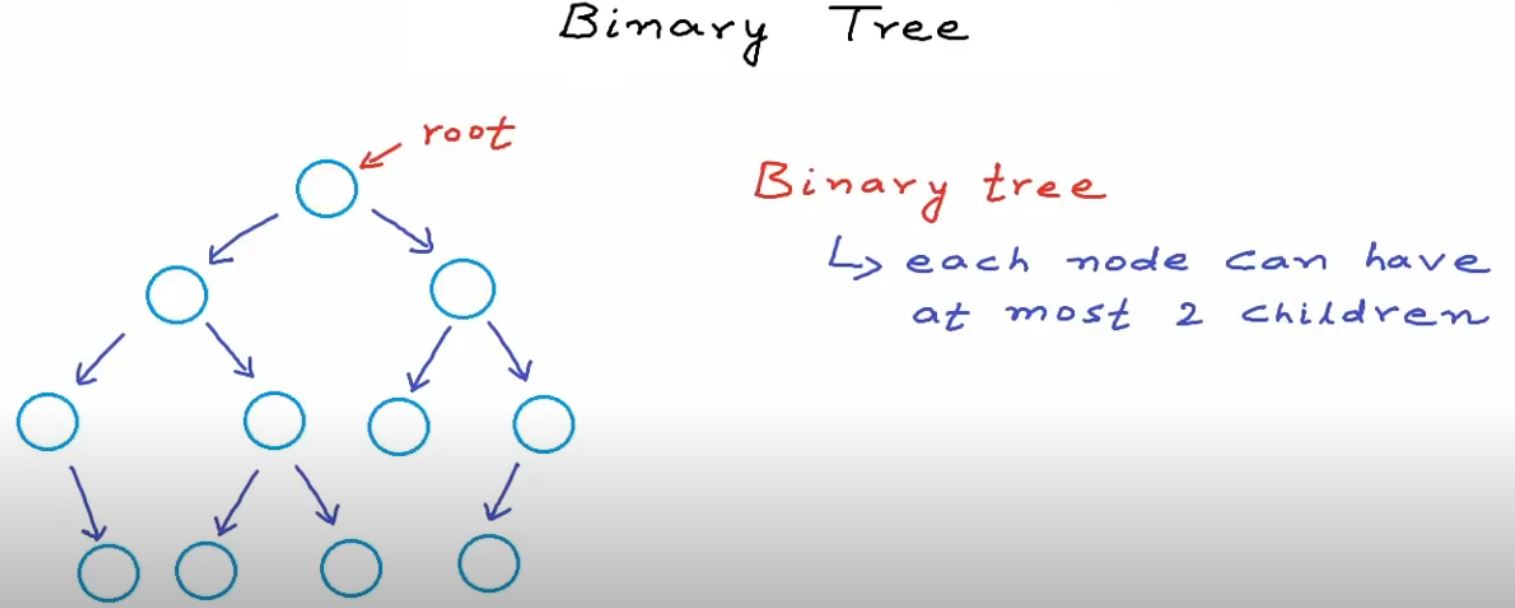 Binary Tree
root
Binary tree
↳ each node can have
at most 2 children